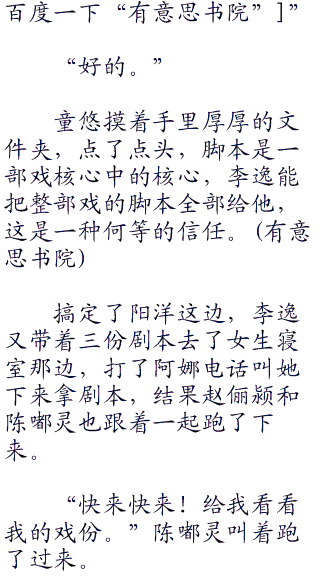 百度一下“有意思书院”]”
“好的。”
童悠摸着手里厚厚的文
件夹，点了点头，脚本是一
部戏核心中的核心，李逸能
把整部戏的脚本全部给他，
这是一种何等的信任。(有意
思书院)
搞定了阳洋这边，李逸
又带着三份剧本去了女生寝
室那边，打了阿娜电话叫她
下来拿剧本，结果赵俪颍和
陈嘟灵也跟着一起跑了下
来。
“快来快来！给我看看
我的戏份。”陈嘟灵叫着跑
了过来。